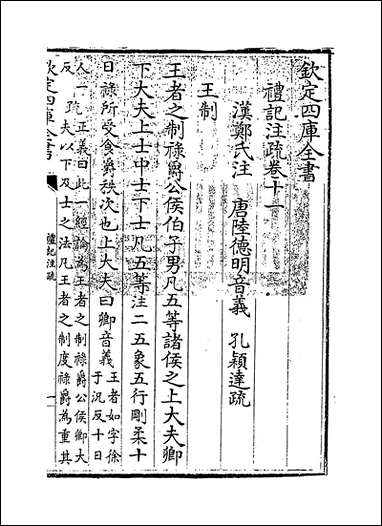 欽定四庫全書
禮記注疏卷十一
漢鄭氏注　唐陸德明音義　孔穎達疏
王制
王者之制祿爵公侯伯子男凡五等諸侯之上大夫卿
下大夫上士中士下士凡五等注二五象五行剛柔十
日祿所受食爵秩次也上大夫曰卿音義王者如字徐
于況反十日
人一疏正義曰此一經論為王者之制祿爵公侯卿大
反　夫以下及士之法凡王者之制度祿爵為重其
欽定四庫全書
禮記注疏
一